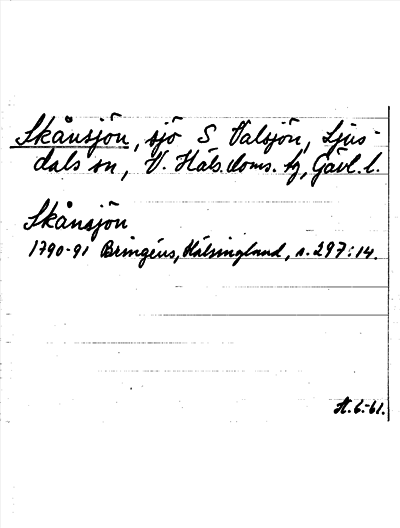 Skånsjön, sjö S Valsjön, Ljus-
dals sn, V. Häls. doms. tg, Gävl. l.
Skånsjön
1790-91 Bringéus, Hälsingland, s. 297:14.
H. 6.-61.